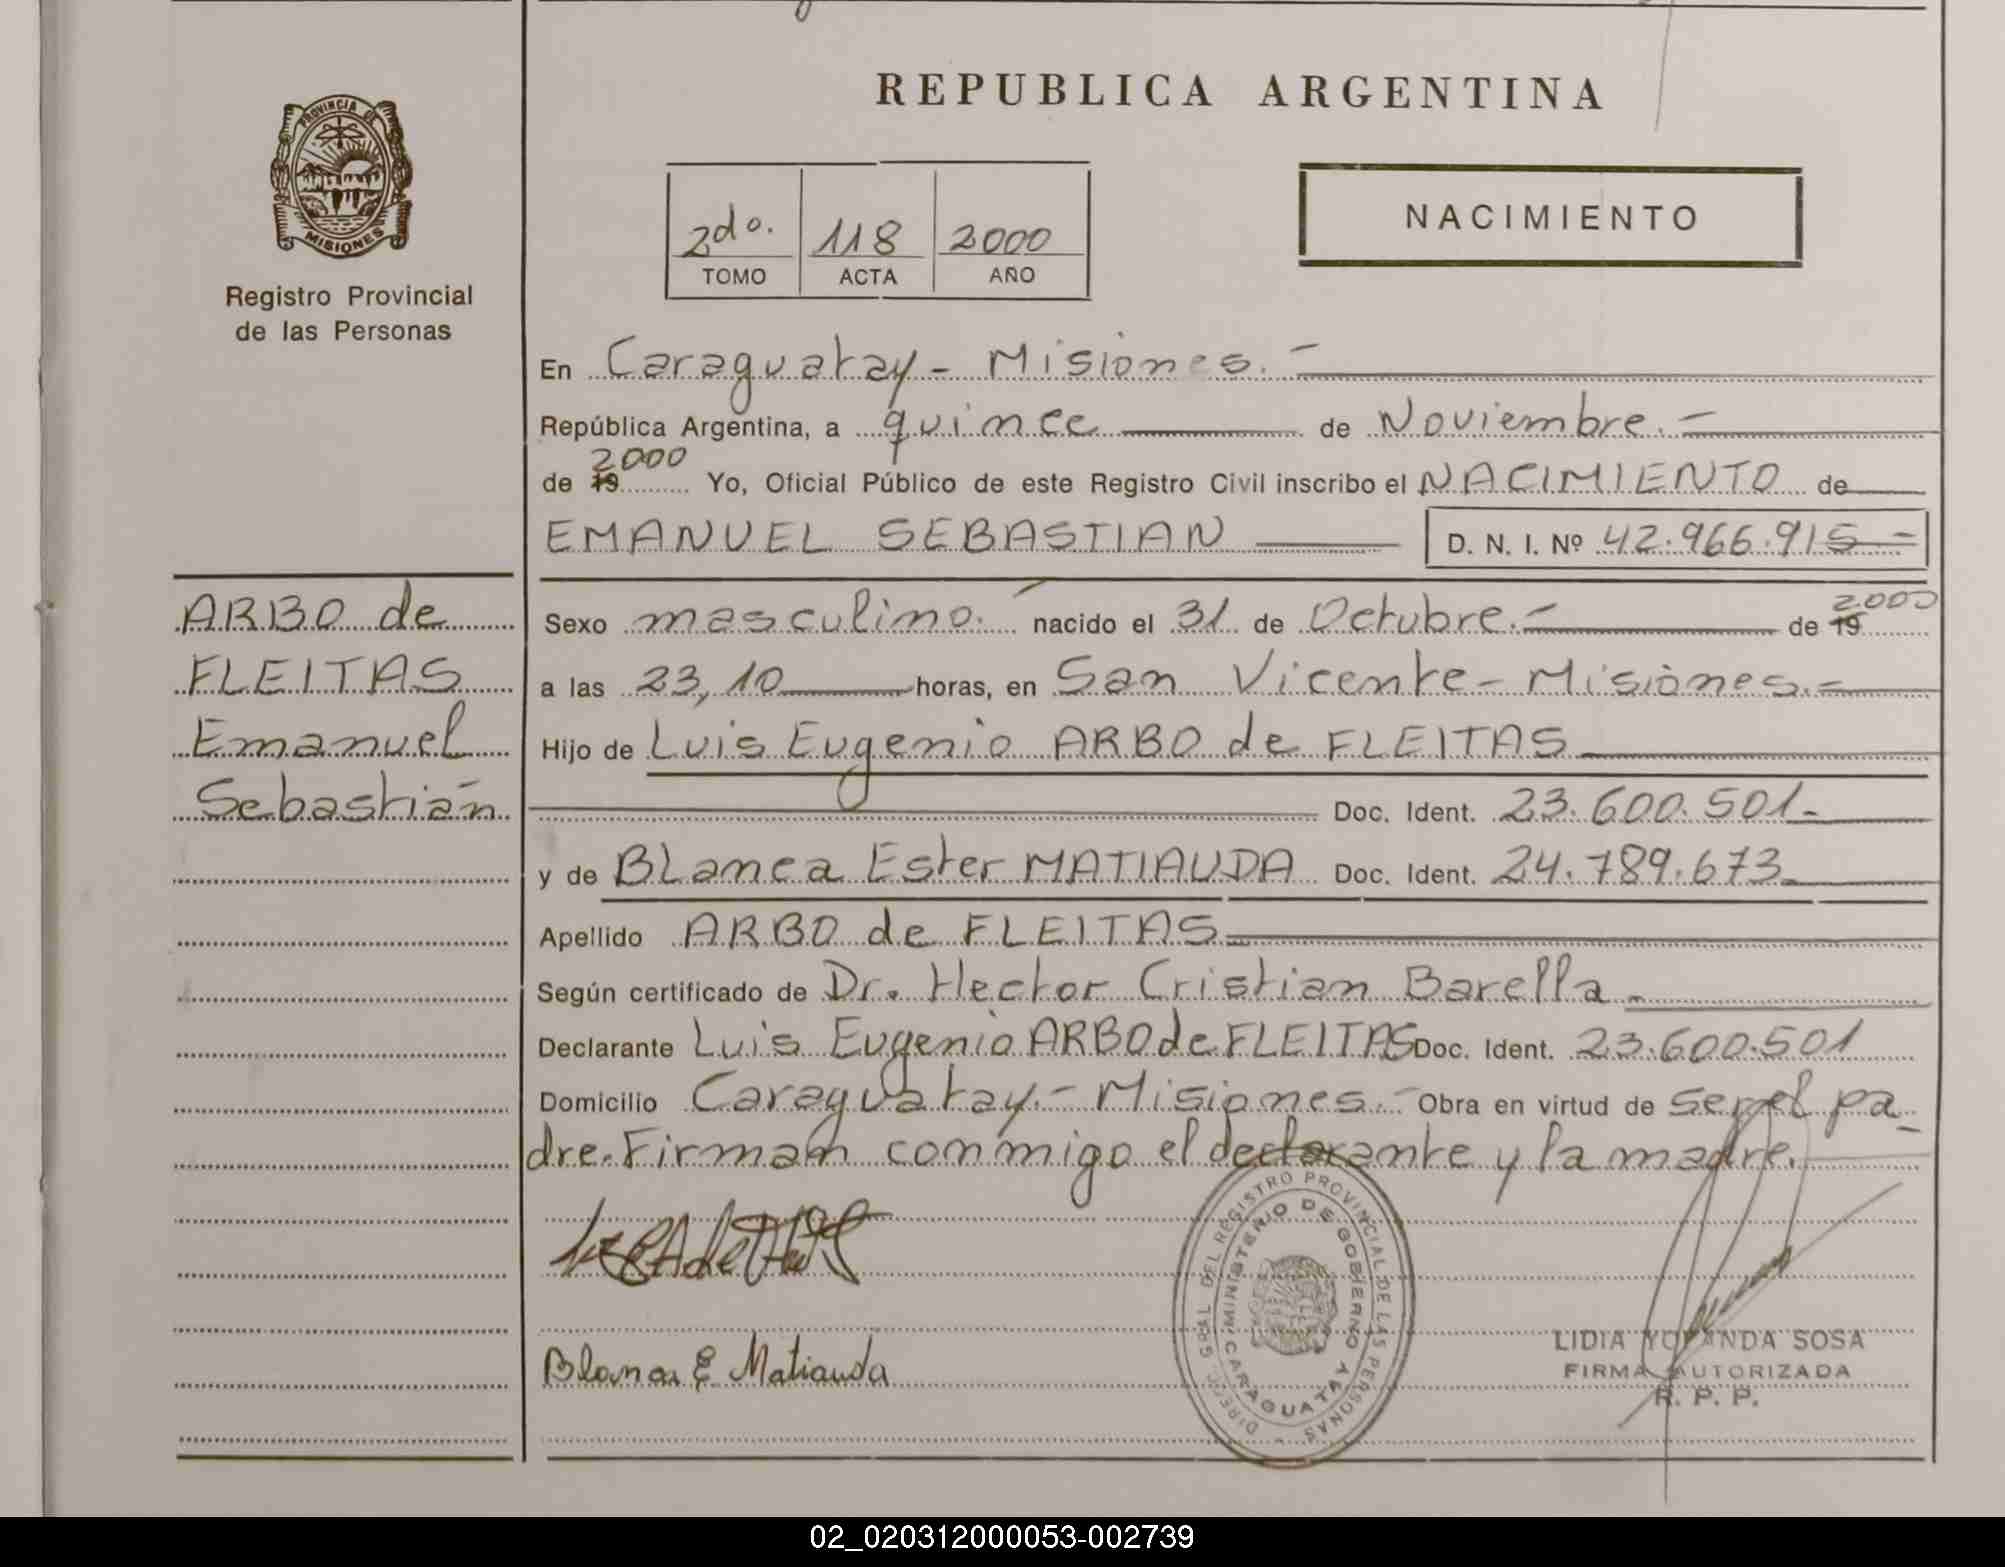 REPUBLICA ARGENTINA
PROVINCIA DE
MISIONES
Registro Provincial
de las Personas
2do. 118 2000
TOMO ACTA AÑO
NACIMIENTO
En Caraguatay - Misiones. -
República Argentina, a quince de Noviembre. -
de 19 2000 Yo, Oficial Público de este Registro Civil inscribo el NACIMIENTO de
EMANUEL SEBASTIAN D. N. I. Nº 42.966.915 -
ARBO de
FLEITAS
Emanuel
Sebastián
Sexo masculino. nacido el 31 de Octubre. - de 19 2000
a las 23,10 horas, en San Vicente - Misiones. -
Hijo de Luis Eugenio ARBO de FLEITAS
Doc. Ident. 23.600.501 -
y de BLanca Ester MATIAUDA Doc. Ident. 24.789.673 -
Apellido ARBO de FLEITAS
Según certificado de Dr. Hector Cristian Barella -
Declarante Luis Eugenio ARBO de FLEITAS Doc. Ident. 23.600.501
Domicilio Caraguatay. - Misiones. - Obra en virtud de ser el pa_
dre. Firman conmigo el declarante y la madre.
Blanca E Matiauda
DIREC. GRAL. DEL REGISTRO PROVINCIAL DE LAS PERSONAS -
MINISTERIO DE GOBIERNO
CARAGUATAY
LIDIA YOLANDA SOSA
FIRMA AUTORIZADA
R. P. P.
02_020312000053-002739